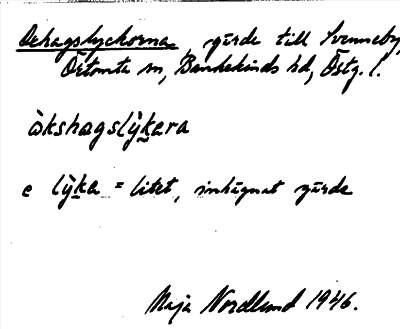 Oxhagslyckorna, gärde till Svenneby,
Örtomta sn, Bankekinds hd, Östg. l.
òkshagslỳkara
e lỳka = litet, inhägnat gärde
Maja Nordlund 1946.